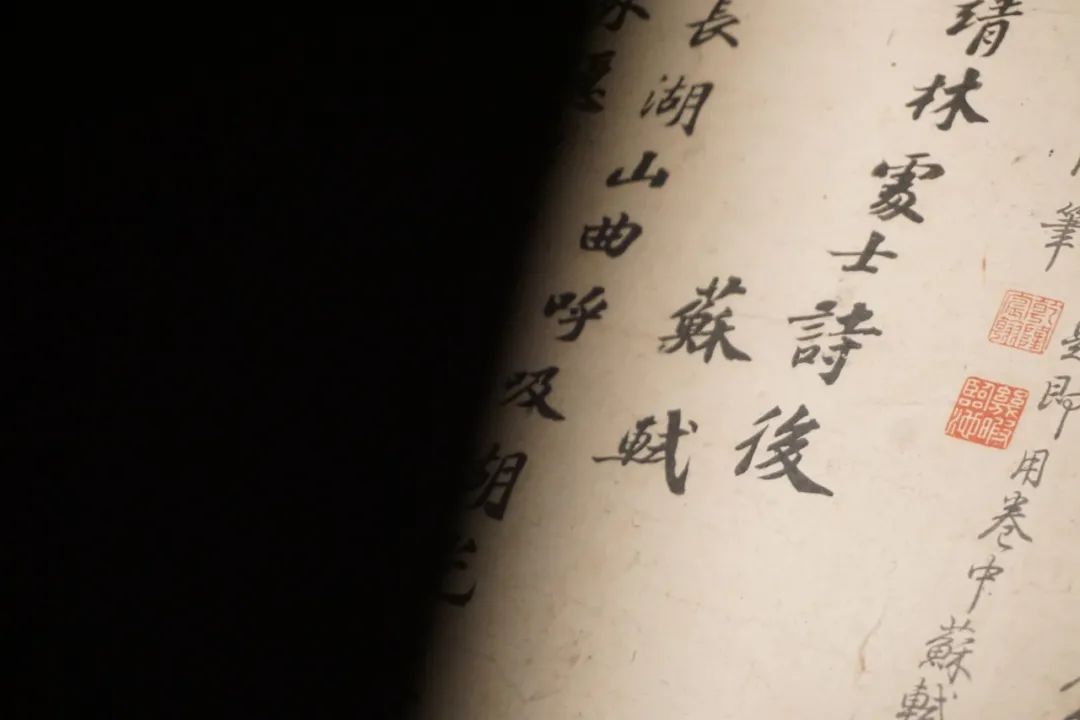 即用卷中蘇軾
筆
乾隆宸翰
幾暇臨池
靖林處士詩後
蘇軾
長湖山曲呼吸